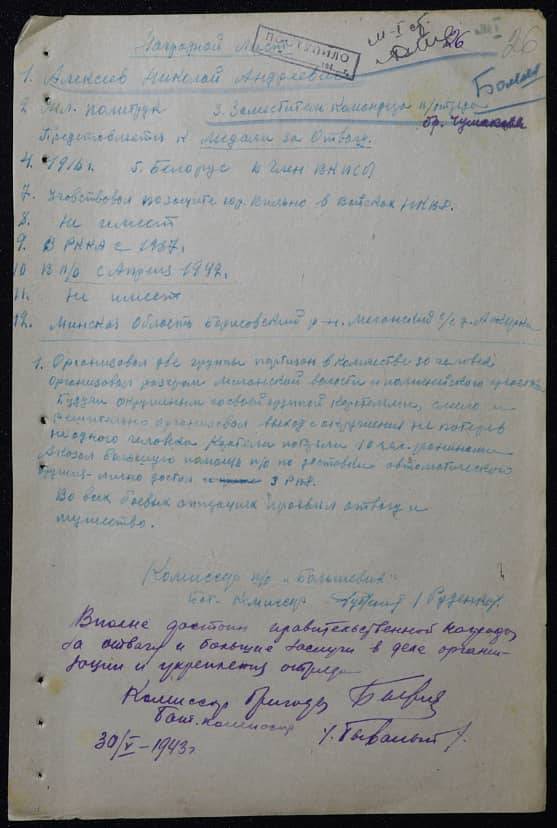 Наградной лист
ПОСТУПИЛО
26
26
1. Алексеев Николай Андреевич
2. Мл. политрук 3. Заместитель командира п/отряда
бр. Чумакова
Представляется к Медали за Отвагу.
4. 1916 г. 5. Белорус 6 Член ВКП(б)
7. Учавствовал в защите гор. Вильно в войсках НКВД.
8. Не имеет
9. В РККА с 1937 г.
10 В п/о с Апреля 1942 г.
11. Не имеет
12. Минская область Борисовский р-н. с/с д.
1. Организовал две группы партизан в количестве 30 человек
организовал разгром волости и полицейского участка
Будучи окруженным с своей группой карателями, смело и
решительно организовал выход с окружения не потеряв
ни одного человека Каратели потеряли 10 чел. ранеными
Аказал большую помощь п/о по доставки автоматического
оружия - лично достал 3 РПД.
Во всех боевых операциях проявил отвагу и
мужество.
Комиссар п/о "Большевик"
Бат. Комиссар
Вполне достоин правительственной награды
за отвагу и большие заслуги в деле органи-
зации и укрепления отряда
Комиссар бригады
Бат. комиссар /Бывалый/
30/V-1943 г